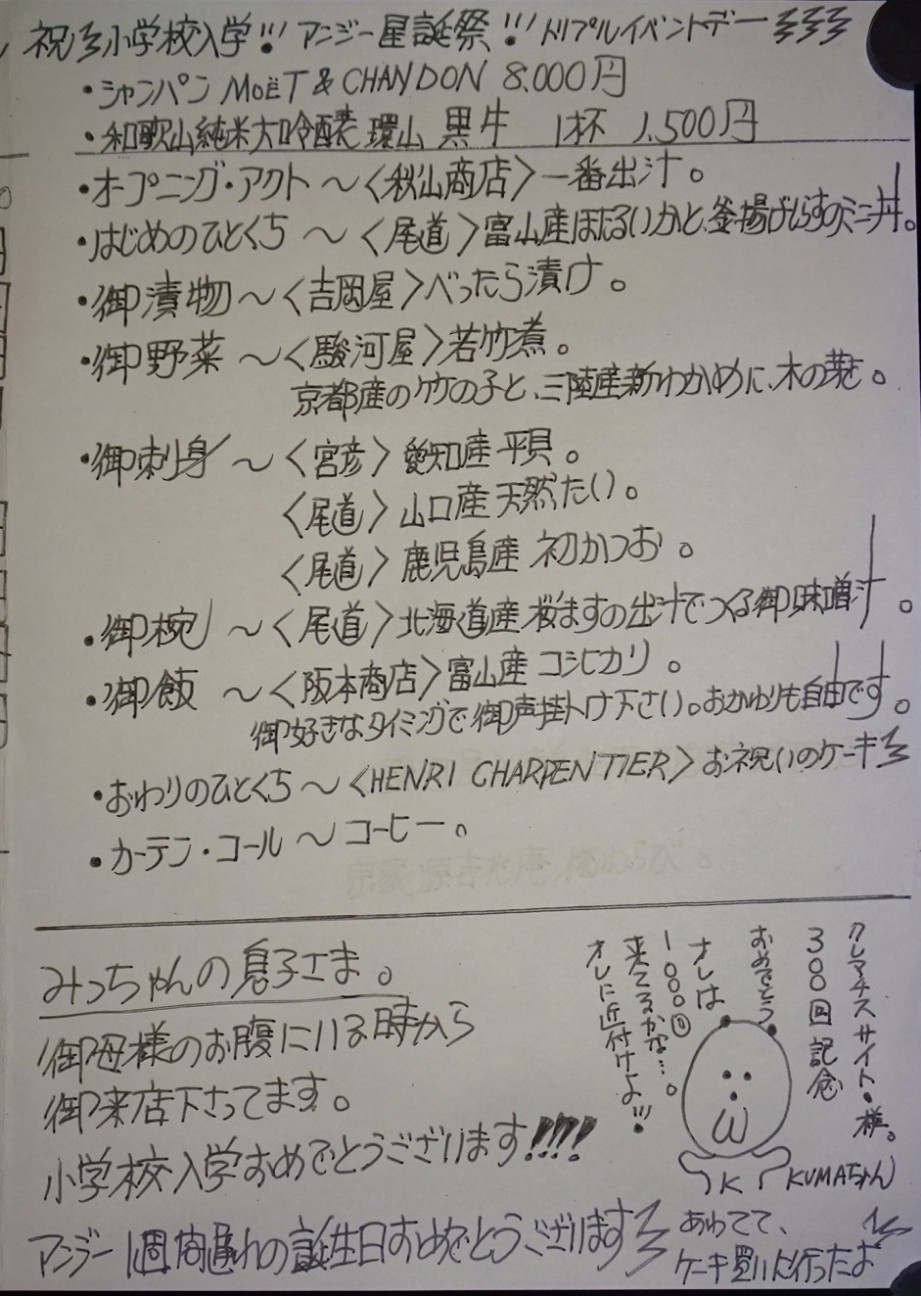 祝 小学校入学!! アンジー星誕祭!! トリプルイベントデー
・シャンパン MOËT & CHANDON 8.000円
・和歌山純米大吟醸 環山 黒牛 1杯 1.500円
・オープニング・アクト 〜〈秋山商店〉一番出汁。
・はじめのひとくち 〜〈尾道〉富山産ほたるいかと、釜揚げしらすのミニ丼。
・御漬物〜〈吉岡屋〉べったら漬け。
・御野菜 〜〈駿河屋〉若竹煮。
京都産の竹の子と、三陸産新わかめに、木の芽を。
・御刺身 〜〈宮彦〉愛知産 平貝。
〈尾道〉山口産 天然たい。
〈尾道〉鹿児島産 初かつお。
・御椀 〜〈尾道〉北海道産 桜ますの出汁でつくる御味噌汁。
・御飯 〜〈阪本商店〉富山産 コシヒカリ。
御好きなタイミングで御声掛け下さい。おかわりも自由です。
・おわりのひとくち〜〈HENRI CHARPENTIER〉お祝いのケーキ
・カーテン・コール 〜 コーヒー。
みっちゃんの息子さま。
御母様のお腹にいる時から
御来店下さってます。
小学校入学おめでとうございます!!!!
アンジー 1週間遅れの誕生日おめでとうございます
クレマチスサイト・様。
300回記念
おめでとう
オレは
1000回
来てるかな…。
オレに近付けよ!!
K
KUMAちゃん
あわてて、
ケーキ買いに行ったよ